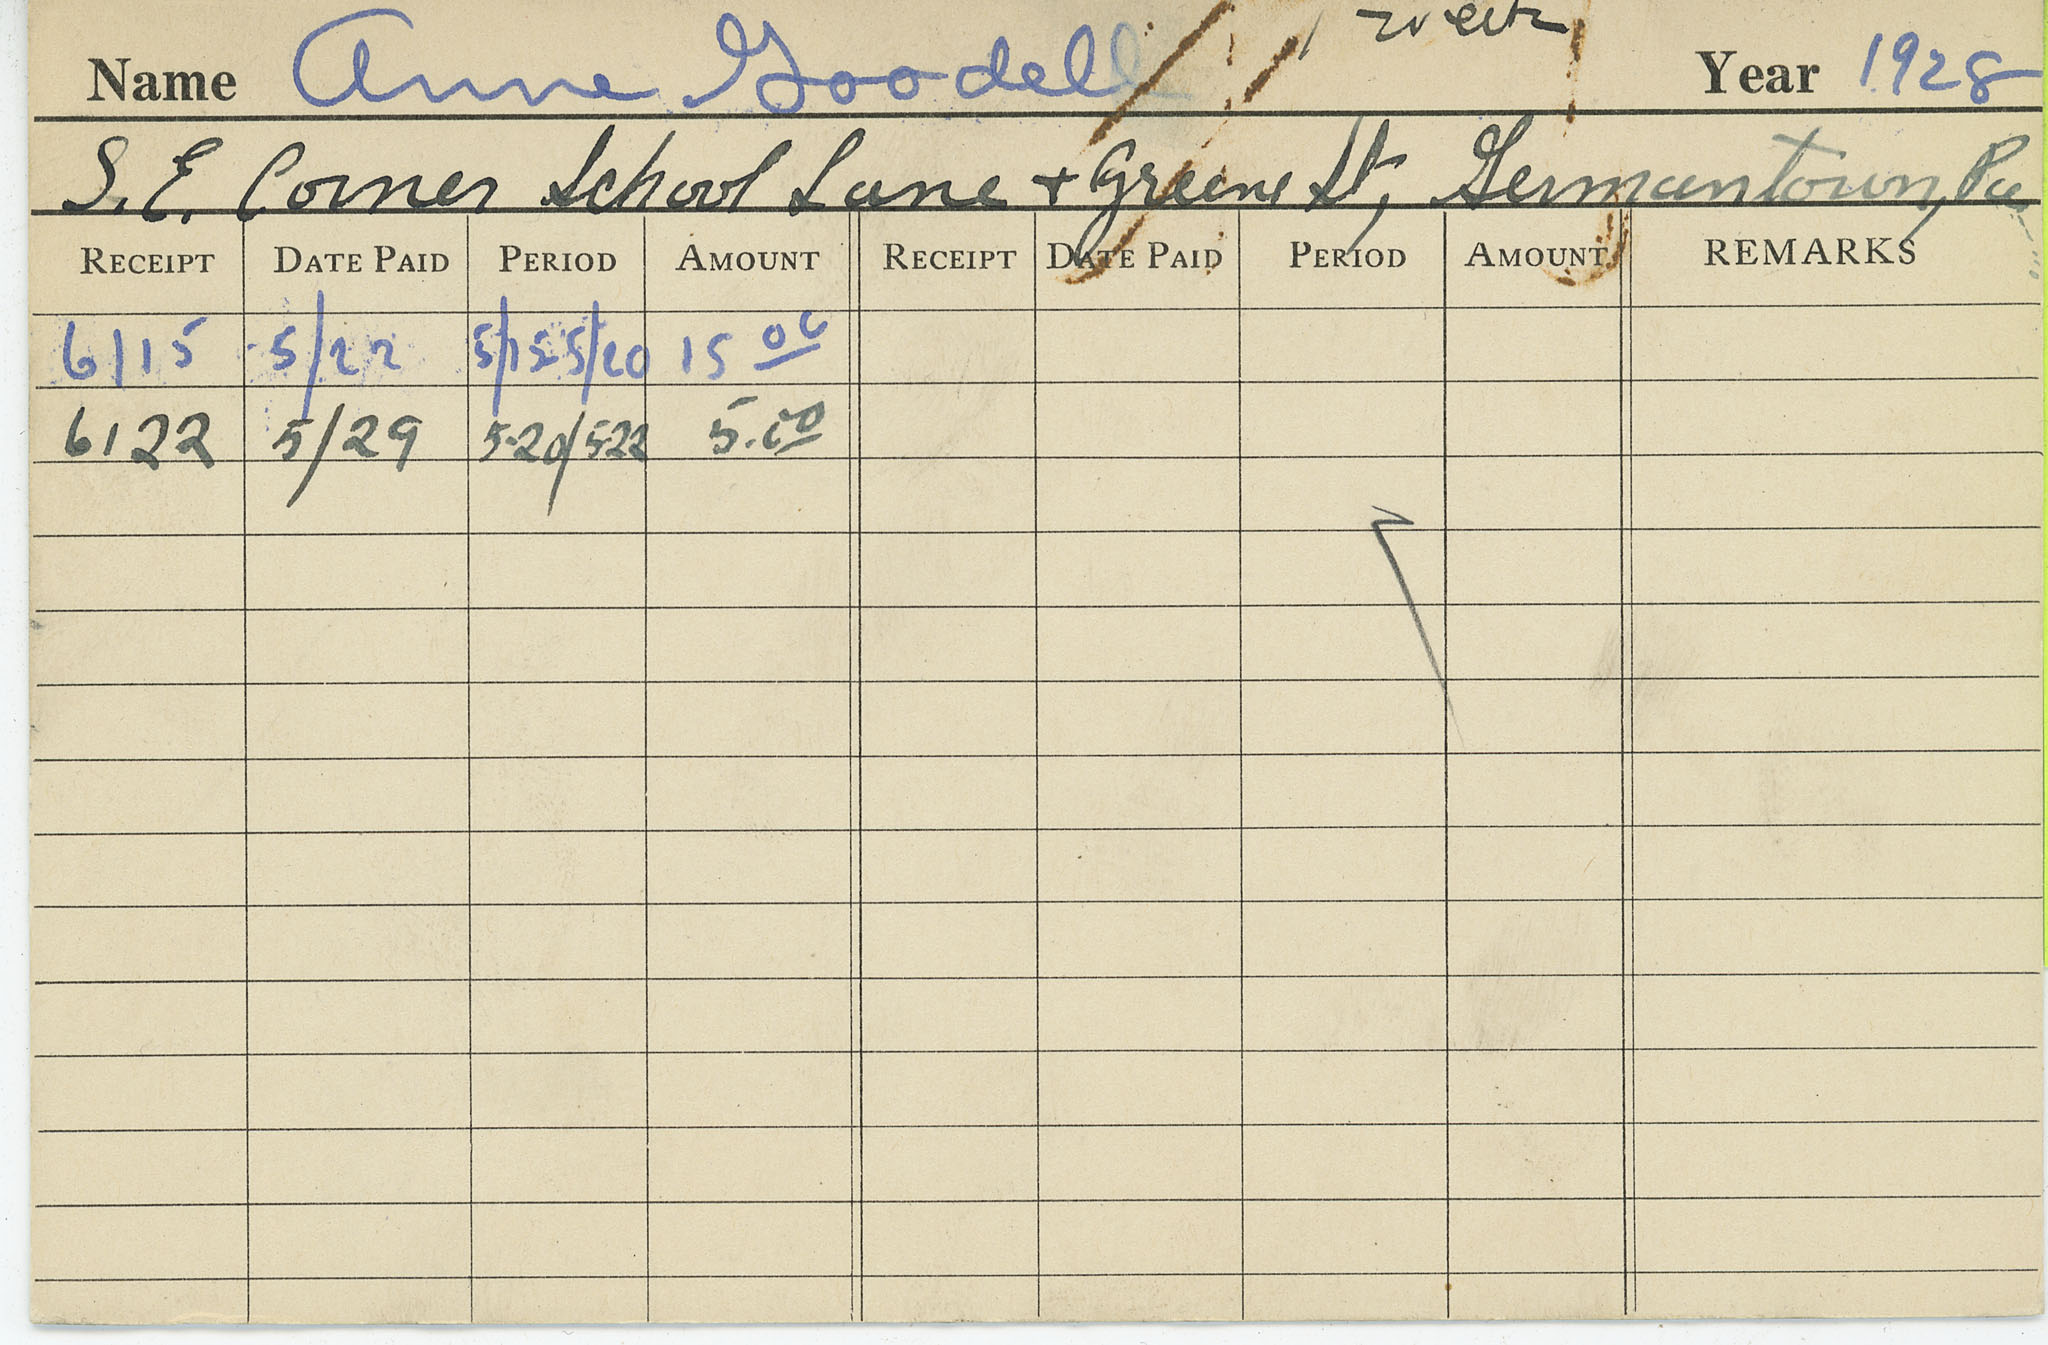 1 week
Name Anne Goodell Year 1928
S. E. Corner School Lane + Greene St, Germantown, Pa
RECEIPT DATE PAID PERIOD AMOUNT RECEIPT DATE PAID PERIOD AMOUNT REMARKS
6115 5/22 5/15 5/20 15 00
6122 5/29 5-20/5-22 5.00